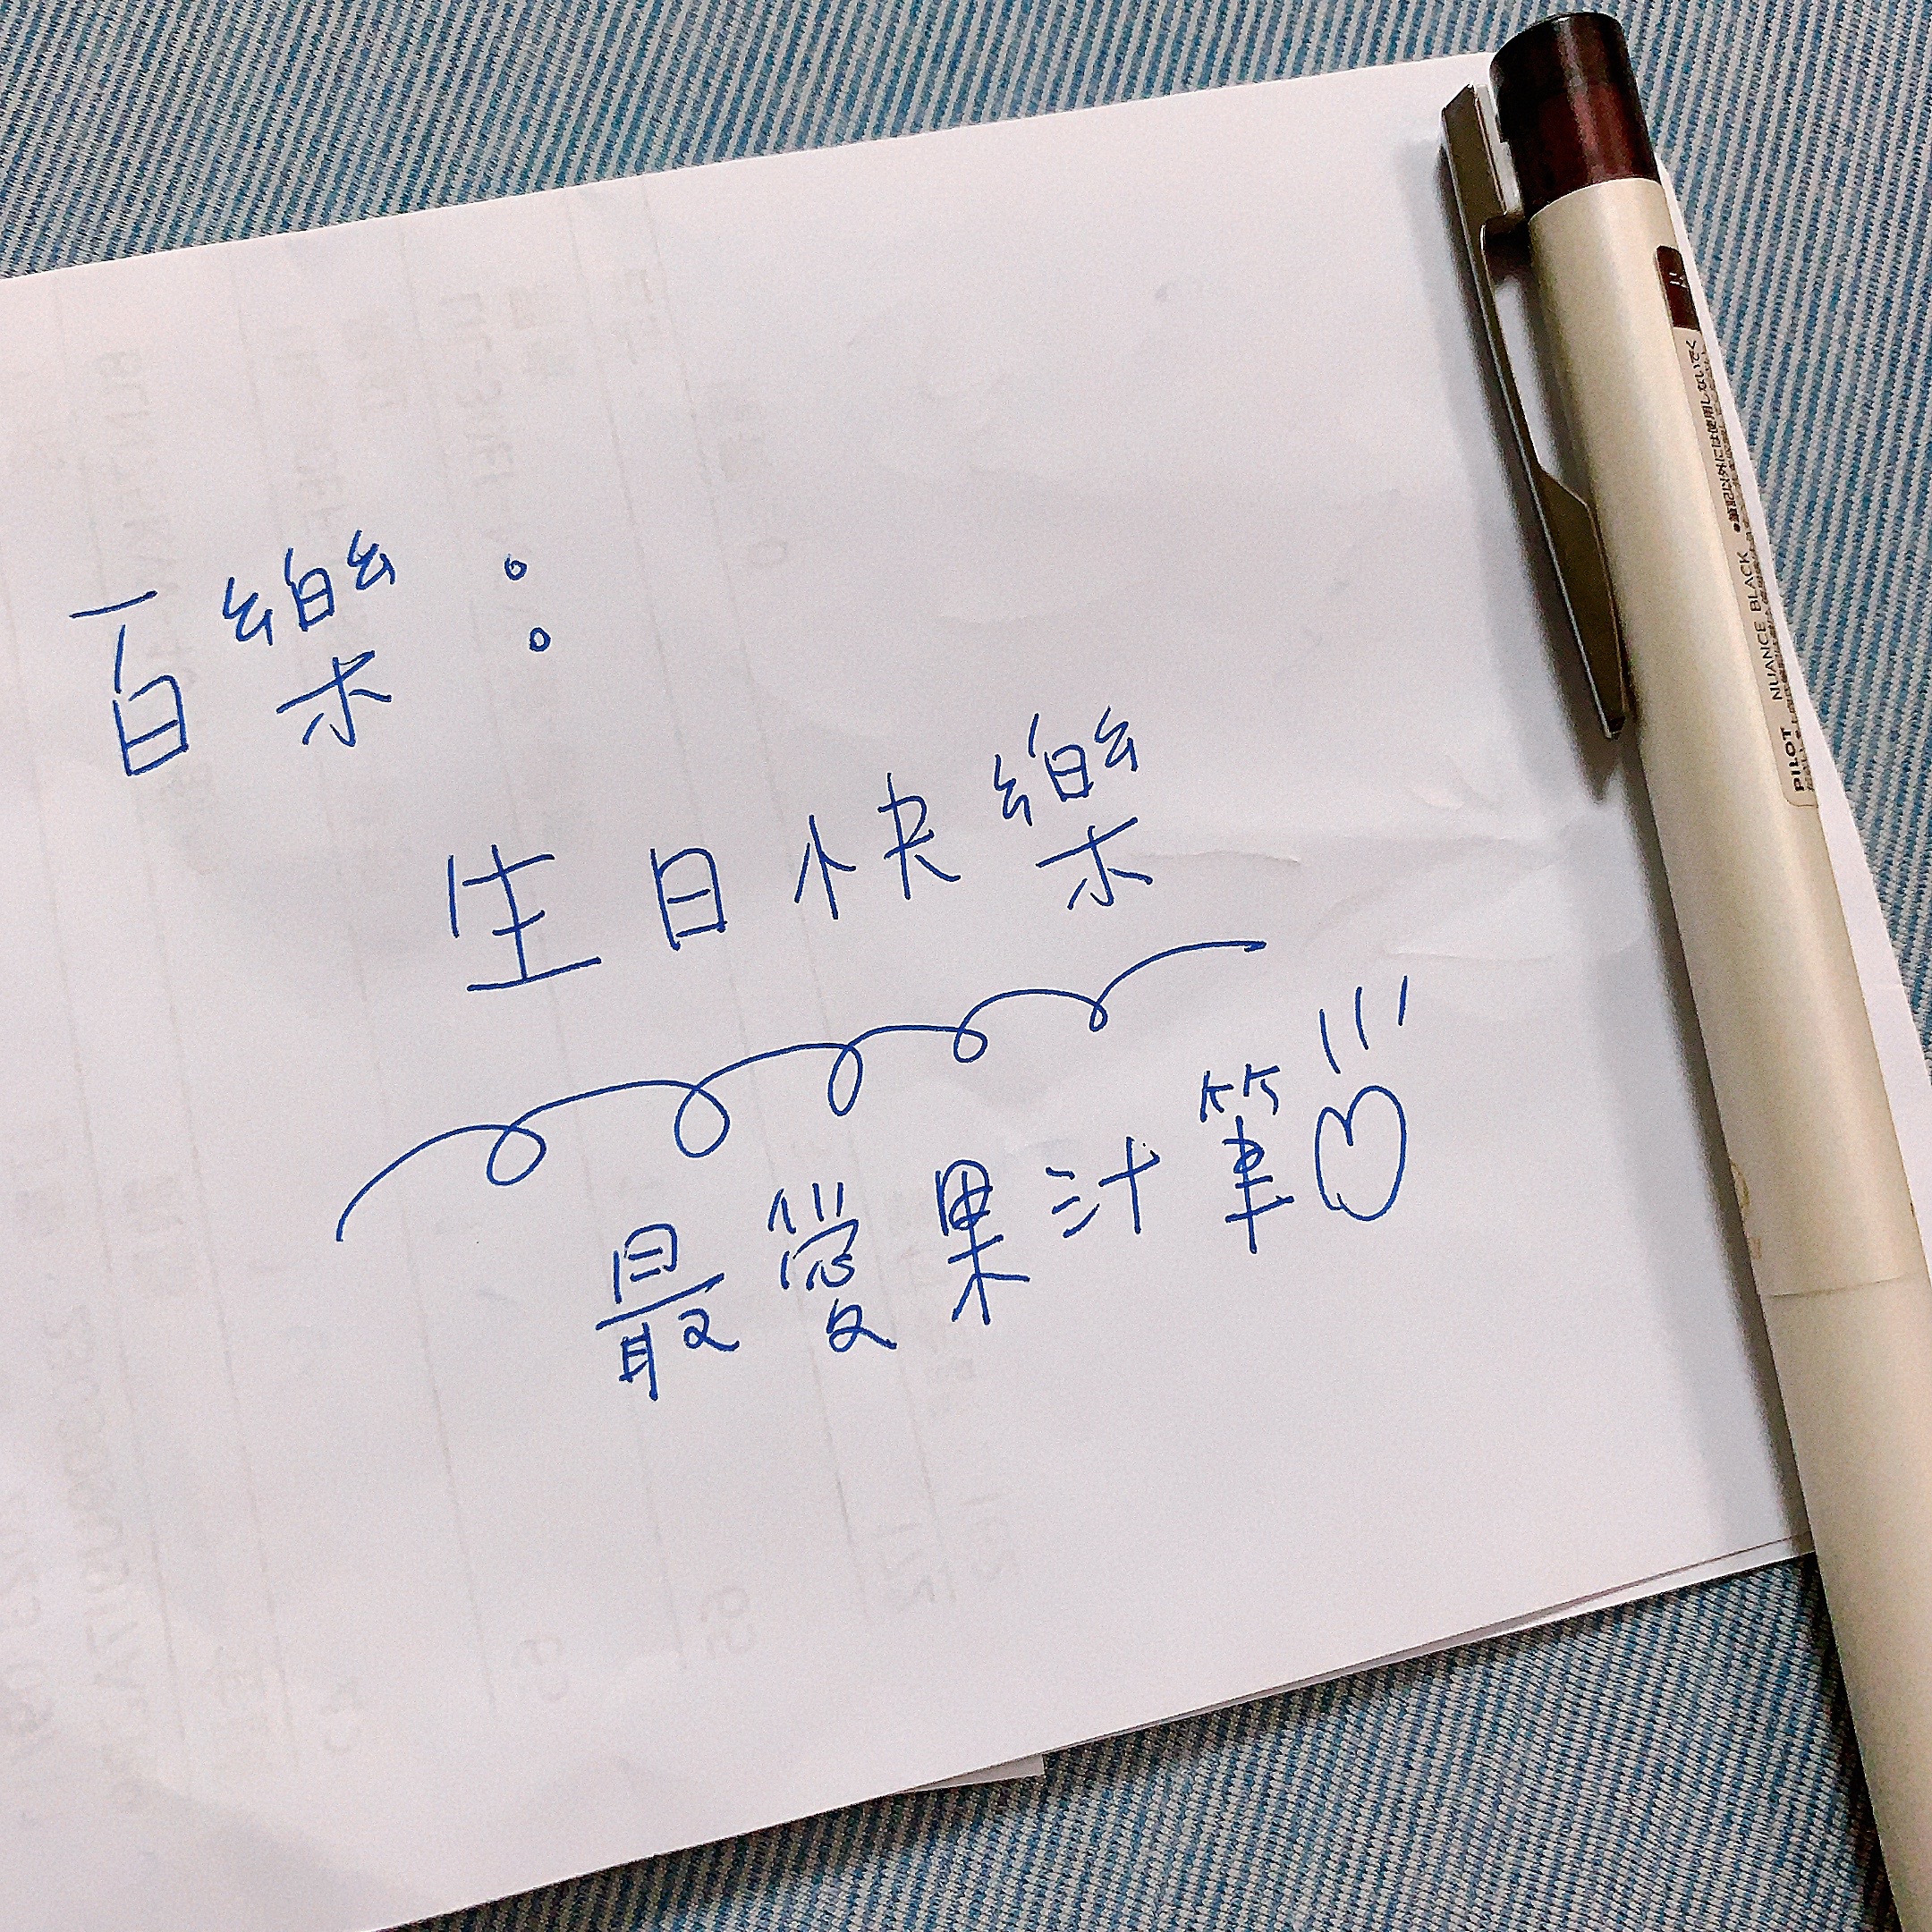 百樂：
生日快樂
最愛果汁筆♡
PILOT NUANCE BLACK ●筆記以外には使用しないでく